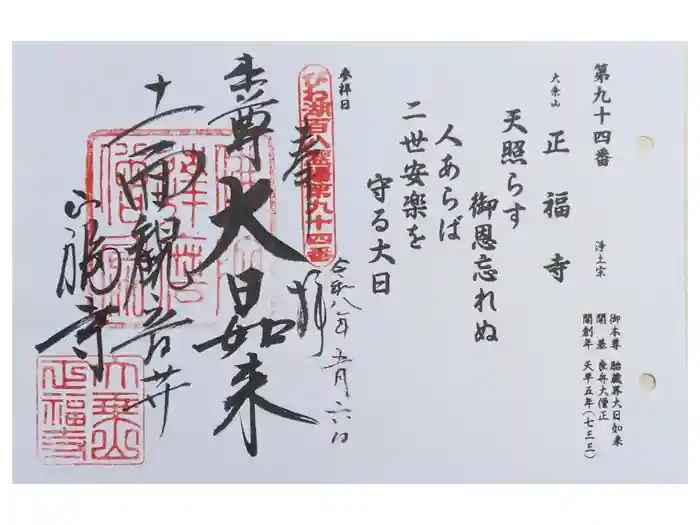 第九十四番
大乗山 正福寺 浄土宗
御本尊 胎蔵界大日如来
開基 良弁大僧正
開創年 天平五年(七三三)
天照らす
御恩忘れぬ
人あらば
二世安楽を
守る大日
参拝日
びわ湖百八霊場第九十四番
奉拝
令和八年五月六日
本尊 大日如来
十一面観音
正福寺
大乗山
正福寺